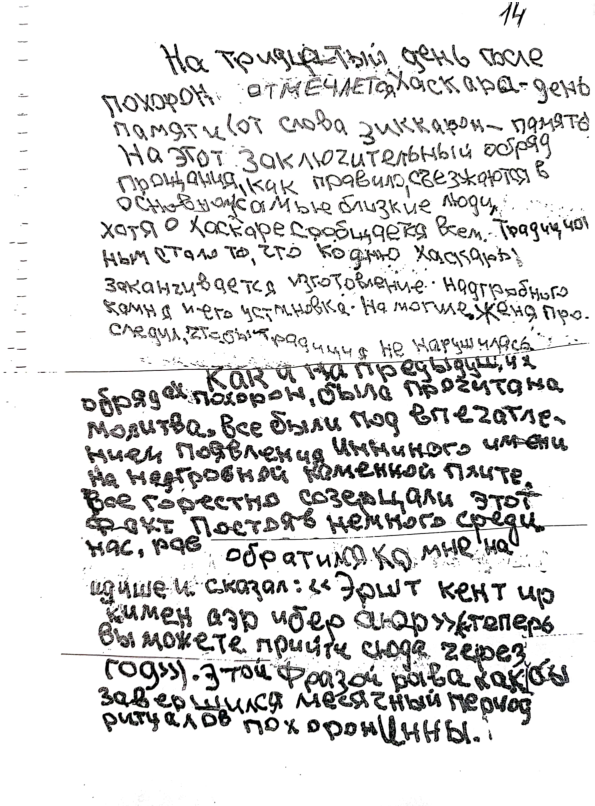 14
На тридцатый день после
похорон отмечается Хаскара - день
памяти (от слова зиккарон - память
На этот заключительный обряд
прощания, как правило, съезжаются в
основном самые близкие люди,
хотя о Хаскаре сообщается всем. Традицион
ным стало то, что ко дню Хаскары
заканчивается изготовление надгробного
камня и его установка на могиле. Женя про-
следил, чтобы традиция не нарушилась
Как и на предыдущих
обрядах похорон, была прочитана
молитва. Все были под впечатле-
нием появления Инниного имени
на надгробной каменной плите.
Все горестно созерцали этот
факт Постояв немного среди
нас, рав обратился ко мне на
идише и сказал: «Эршт кент ир
кимен аэр ибер а юр» (теперь
вы можете прийти сюда через
год»). Этой фразой рава как бы
завершился месячный период
ритуалов похорон Инны.